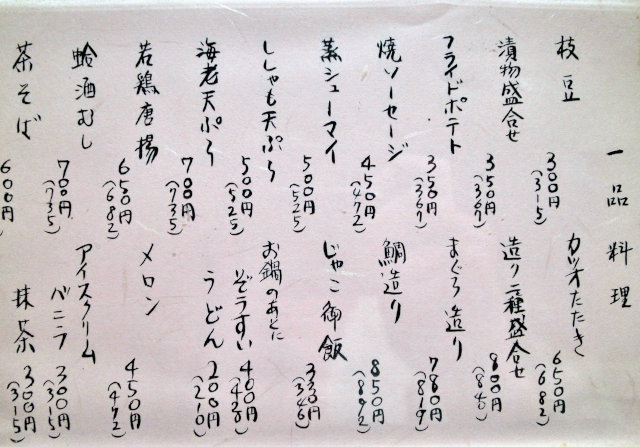 一品料理
枝豆 300円(315)
漬物盛合せ 350円(367)
フライドポテト 350円(367)
焼ソーセージ 450円(472)
蒸シューマイ 500円(525)
ししゃも天ぷら 500円(525)
海老天ぷら 700円(735)
若鶏唐揚 650円(682)
蛤酒むし 700円(735)
茶そば 600円
カツオたたき 650円(682)
造り二種盛合せ 800円(840)
まぐろ造り 780円(819)
鯛造り 850円(892)
じゃこ御飯 330円(346)
お鍋のあとに
ぞうすい 400円(420)
うどん 200円(210)
メロン 450円(472)
アイスクリーム
バニラ 300円(315)
抹茶 300円(315)